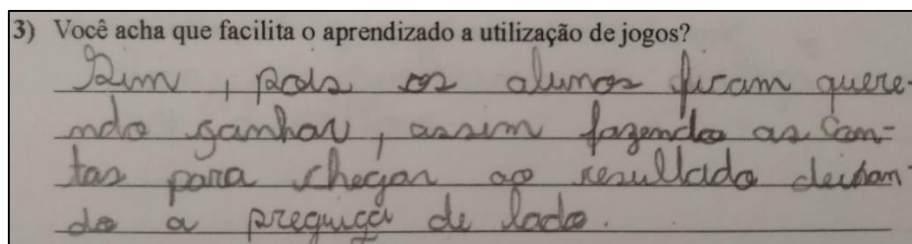 3) Você acha que facilita o aprendizado a utilização de jogos?
Sim, pois os alunos ficam quere-
ndo ganhar, assim fazendo as con-
tas para chegar ao resultado deixan-
do a preguiça de lado.